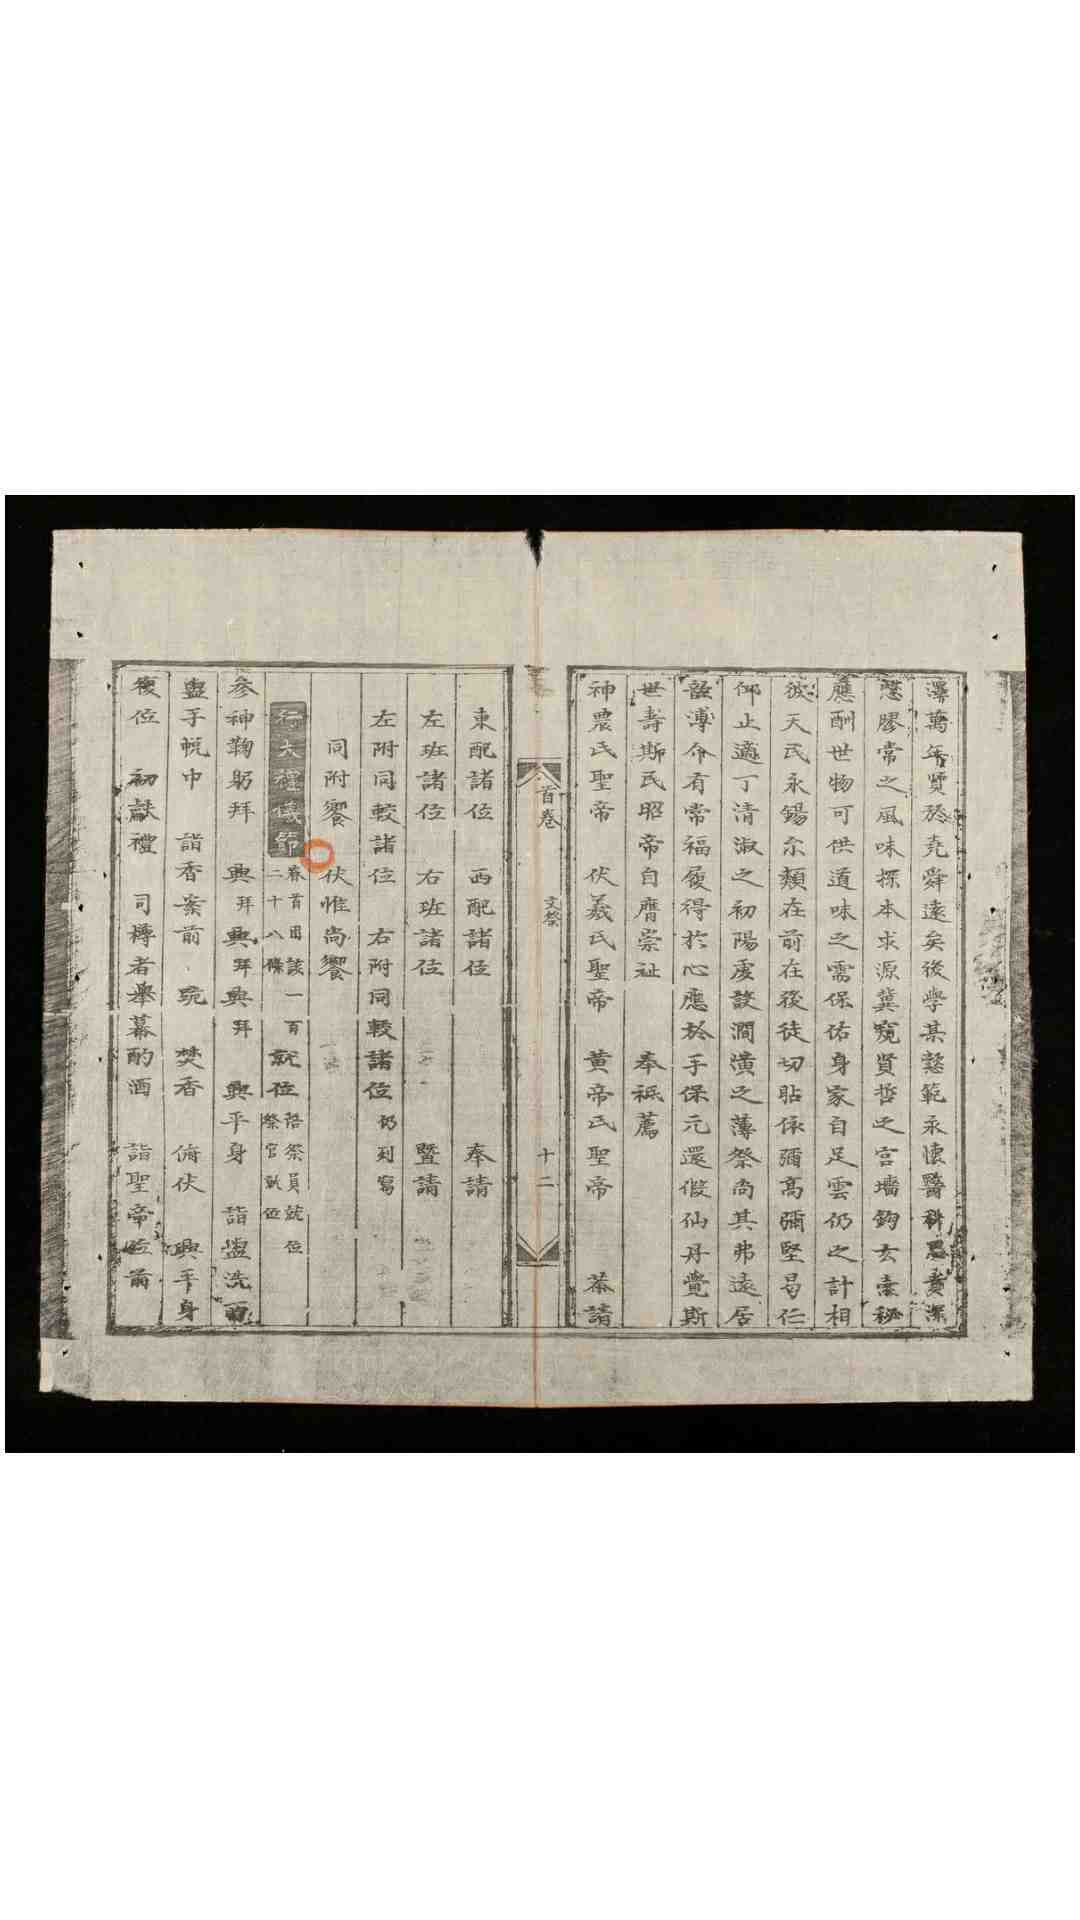 澤萬年賢於堯舜遠矣後學某慤範永懷醫科風賁深
慈膠常之風味探本求源冀窺賢哲之宮墻鉤玄橐秘
應酬世物可供道味之需保佑身家自足雲仍之計相
彼天民永錫尒類在前在後徒切貼依彌高彌堅曷仁
仰止適丁清淑之初陽虔設澗潢之薄祭尚其弗遠居
歆溥介有常福履得於心應於手保元還假仙丹覺斯
世壽斯民昭帝自膺崇祉 奉祗薦
神農氏聖帝 伏羲氏聖帝 黄帝氏聖帝 恭請
首卷 文祭 十二
東配諸位 西配諸位 奉請
左班諸位 右班諸位 暨請
左附同較諸位 右附同較諸位 仍列寫
同附饗 伏惟尚饗
行大禮儀節 春首用該一百二十八條 就位 陪祭員就位祭官就位
參神鞠躬拜 興拜興拜興拜 興平身 詣盥洗所
盥手帨巾 詣香案前 跪 焚香 俯伏 興平身
復位 初獻禮 司樽者舉冪酌酒 詣聖帝位前